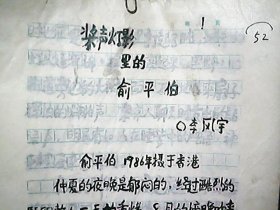 1
52
桨声灯影
里的
俞平伯
○李风宇
俞平伯1986年摄于香港
仲夏的夜晚是郁闷的，经过酷烈的